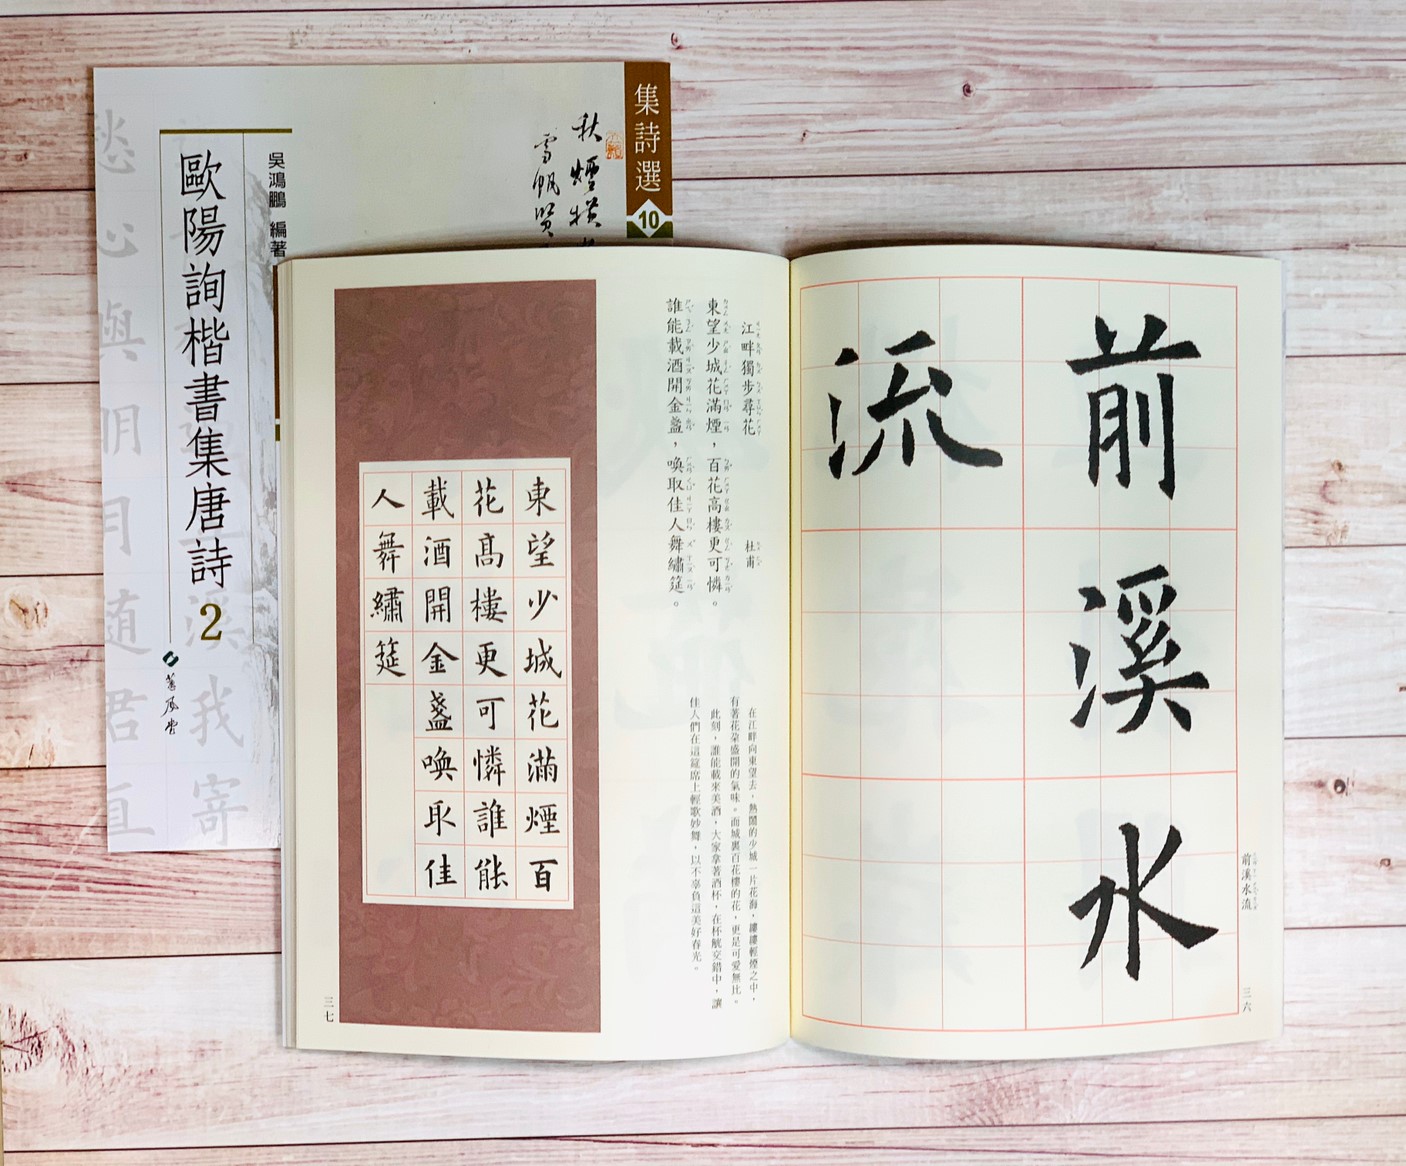 集詩選
10
秋煙橫
雪帆賢
吳鴻鵬 編著
歐陽詢楷書集唐詩2
蕙風堂
愁心與明月隨君直
溪我寄
前溪水
流
前溪水流
三六
江畔獨步尋花 杜甫
東望少城花滿煙，百花高樓更可憐。
誰能載酒開金盞，喚取佳人舞繡筵。
在江畔向東望去，熱鬧的少城一片花海，縷縷輕煙之中，
有著花朵盛開的氣味。而城裏百花樓的花，更是可愛無比。
此刻，誰能載來美酒，大家拿著酒杯，在杯觥交錯中，讓
佳人們在這筵席上輕歌妙舞，以不辜負這美好春光。
東望少城花滿煙百
花高樓更可憐誰能
載酒開金盞喚取佳
人舞繡筵
三七